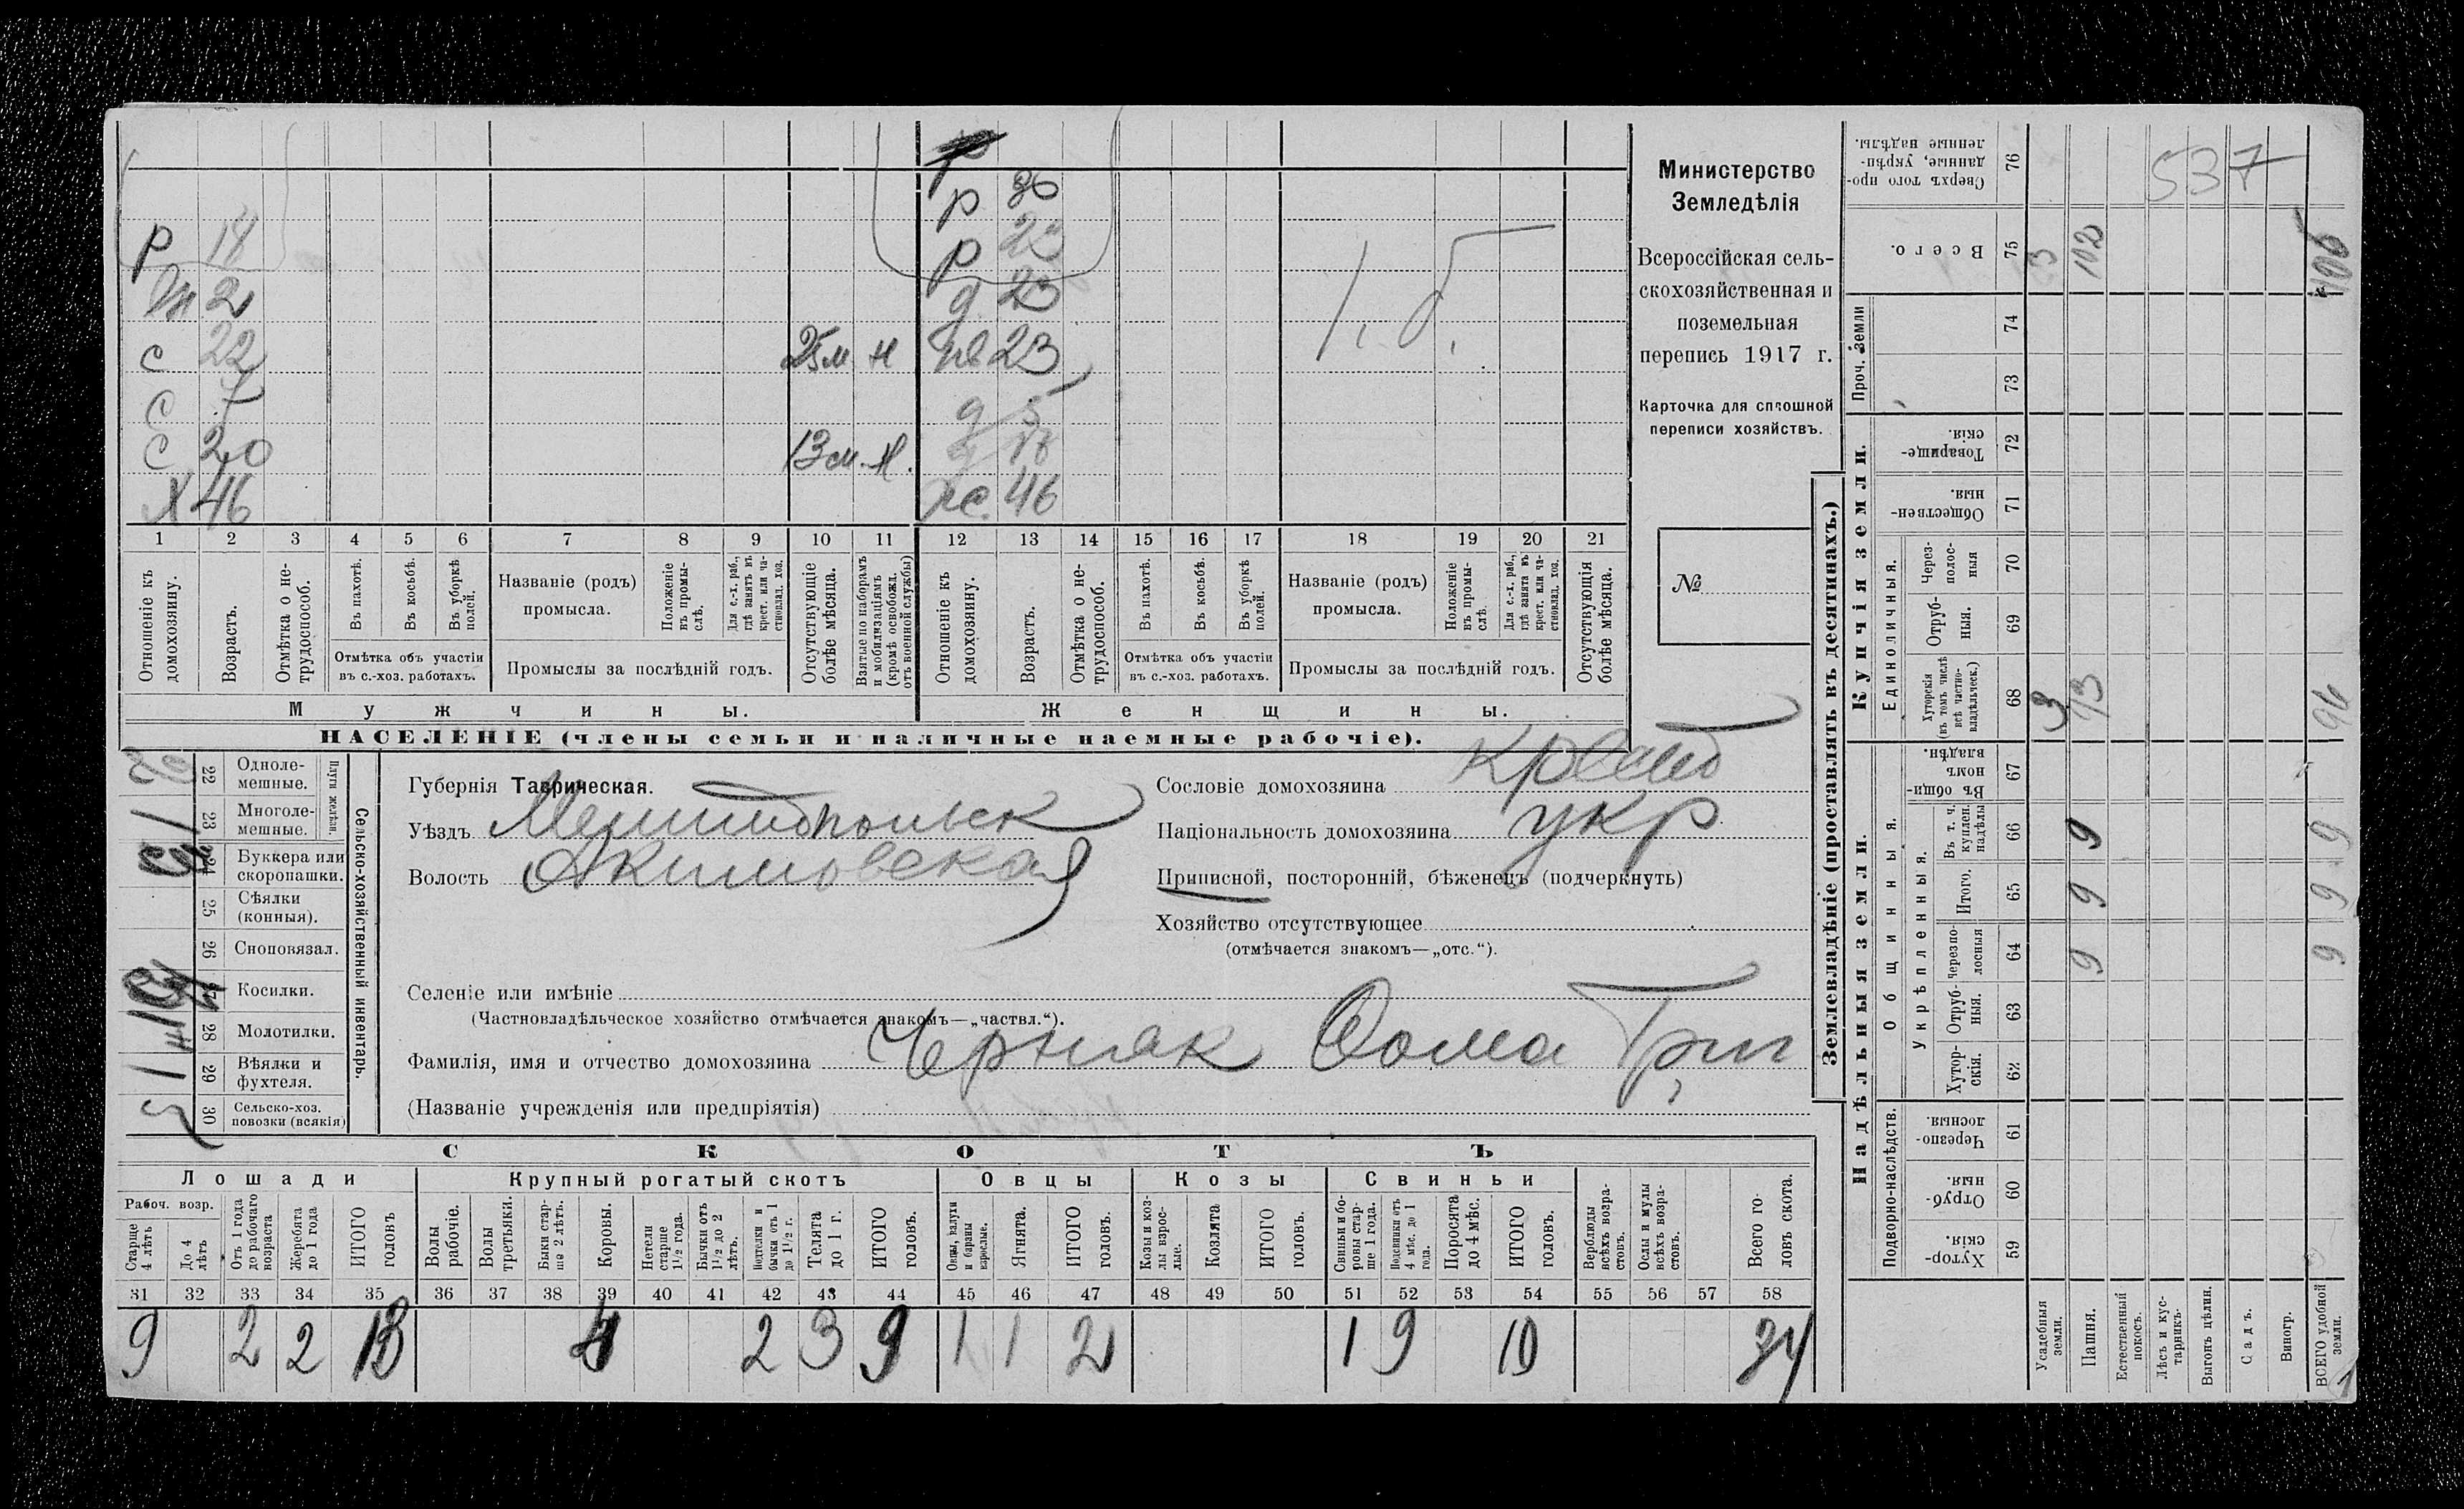 р
р 18 р 30
р 22
2 д 23
с 22 25 м. н 23
с 7 д 5
с 20 13 м. н.
х 46 46
1 2 3 4 5 6 7 8 9 10 11 12 13 14 15 16 17 18 19 20 21
Отношеніе къ домохозяину.
Возрастъ.
Отмѣтка о не-трудоспособ.
Въ пахотѣ.
Въ косьбѣ.
Въ уборкѣ полей.
Отмѣтка объ участіи въ с.-хоз. работахъ.
Названіе (родъ) промысла.
Положеніе въ промы-слѣ.
Для с.-х. раб., гдѣ занятъ въ крест. или ча-стновлад. хоз.
Промыслы за послѣдній годъ.
Отсутствующіе болѣе мѣсяца.
Взятые по наборамъ и мобилизаціямъ (кромѣ освобожд. отъ военной службы)
Отношеніе къ домохозяину.
Возрастъ.
Отмѣтка о не-трудоспособ.
Въ пахотѣ.
Въ косьбѣ.
Въ уборкѣ полей.
Отмѣтка объ участіи въ с.-хоз. работахъ.
Названіе (родъ) промысла.
Положеніе въ промы-слѣ.
Для с.-х. раб., гдѣ занята въ крест. или ча-стновлад. хоз.
Промыслы за послѣдній годъ.
Отсутствующія болѣе мѣсяца.
Мужчины. Женщины.
НАСЕЛЕНІЕ (члены семьи и наличные наемные рабочіе).
Министерство
Земледѣлія
Всероссійская сель-
скохозяйственная и
поземельная
перепись 1917 г.
Карточка для сплошной
переписи хозяйствъ.
№
Сельско-хозяйственный инвентарь.
Плуги желѣзн.
22 Одноле-мешные.
23 Многоле-мешные. 1
24 Буккера или скоропашки.
25 Сѣялки (конныя).
26 Сноповязал.
27 Косилки.
28 Молотилки.
29 Вѣялки и фухтеля. 1
30 Сельско-хоз. повозки (всякія)
Губернія Таврическая.
Уѣздъ Мелитопольск
Волость Акимовская
Сословіе домохозяина Крест
Національность домохозяина укр
Приписной, посторонній, бѣженецъ (подчеркнуть)
Хозяйство отсутствующее
(отмѣчается знакомъ—„отс.“).
Селеніе или имѣніе
(Частновладѣльческое хозяйство отмѣчается знакомъ—„частвл.“).
Фамилія, имя и отчество домохозяина Черняк Ѳома Григ
(Названіе учрежденія или предпріятія)
СКОТЪ
Лошади Крупный рогатый скотъ Овцы Козы Свиньи
Рабоч. возр.
Старше 4 лѣтъ
До 4 лѣтъ
Отъ 1 года до рабочаго возраста
Жеребята до 1 года
ИТОГО головъ
Волы рабочіе.
Волы третьяки.
Быки стар-ше 2 лѣтъ.
Коровы.
Нетели старше 1½ года.
Бычки отъ 1½ до 2 лѣтъ.
Подтелки и бычки отъ 1 до 1½ г.
Телята до 1 г.
ИТОГО головъ.
Овцы, валухи и бараны взрослые.
Ягнята.
ИТОГО головъ.
Козы и коз-лы взрос-лые.
Козлята
ИТОГО головъ.
Свиньи и бо-ровы стар-ше 1 года.
Подсвинки отъ 4 мѣс. до 1 года.
Поросята до 4 мѣс.
ИТОГО головъ.
Верблюды всѣхъ возра-стовъ.
Ослы и мулы всѣхъ возра-стовъ.
Всего го-ловъ скота.
31 32 33 34 35 36 37 38 39 40 41 42 43 44 45 46 47 48 49 50 51 52 53 54 55 56 57 58
9 2 2 13 4 2 3 9 1 1 2 1 9 10 34
Землевладѣніе (проставлять въ десятинахъ.)
Надѣльныя земли. Купчія земли. Проч. земли
Подворно-наслѣдств. Общинныя. Укрѣпленныя. Единоличныя.
59 Хутор-скія.
60 Отруб-ныя.
61 Черезпо-лосныя.
62 Хутор-скія.
63 Отруб-ныя.
64 Черезпо-лосныя 9 9
65 Итого. 9 9
66 Въ т. ч. куплен. надѣлы 9 9
67 Въ общи-номъ владѣн.
68 Хуторскія (въ томъ числѣ всѣ частно-владѣльческ.) 3 93 96
69 Отруб-ныя.
70 Через-полос-ныя
71 Обществен-ныя.
72 Товарище-скія.
73
74
75 Всего. 3 102 105
76 Сверхъ того про-данные, укрѣп-ленные надѣлы.
537
Усадебныя земли.
Пашня.
Естественный покосъ.
Лѣсъ и кус-тарникъ.
Выгонъ цѣлин.
Садъ.
Виногр.
ВСЕГО удобной земли.